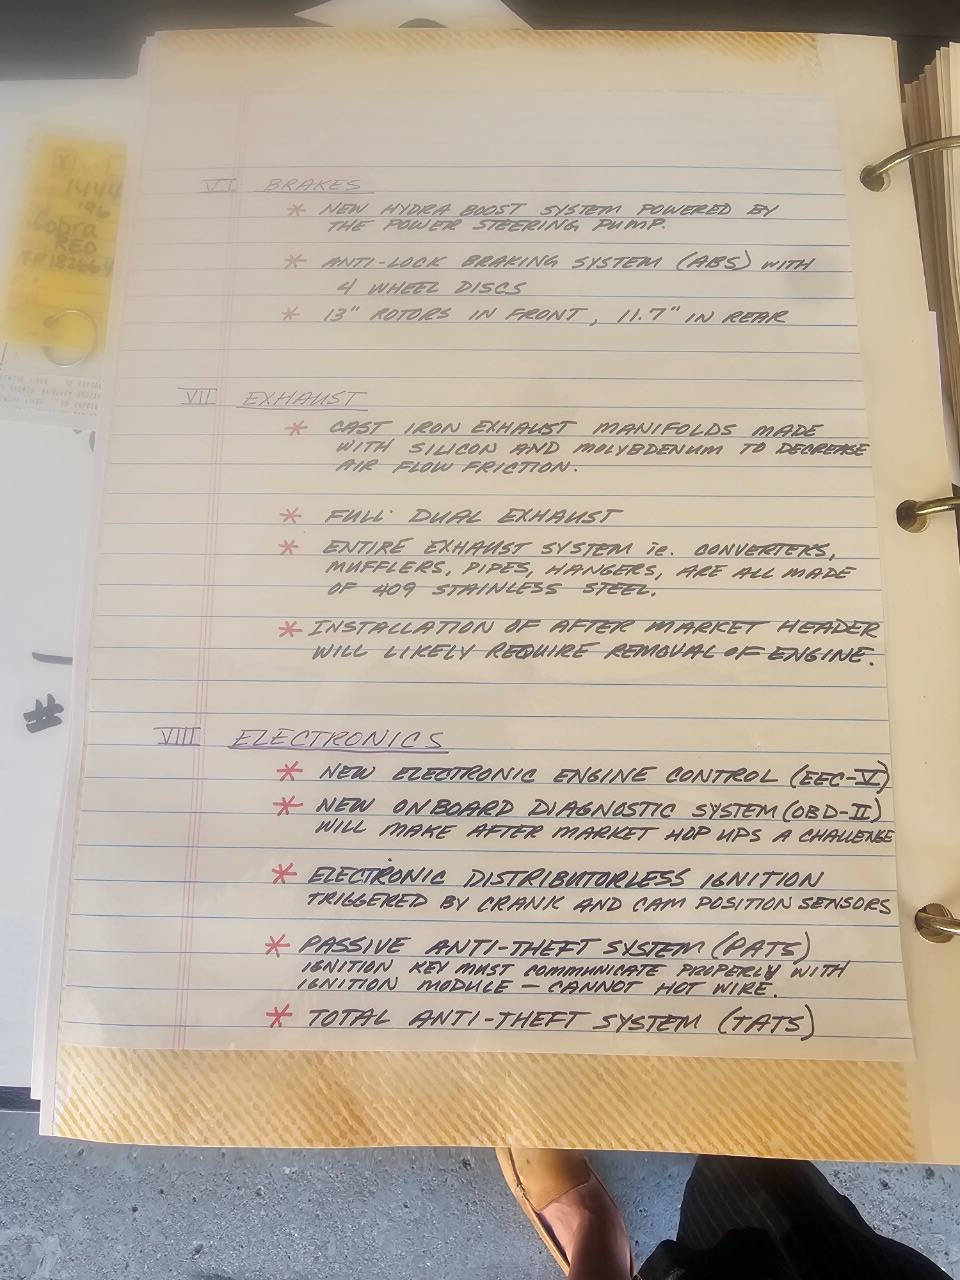 1444
'96
Cobra
RED
VI BRAKES
* NEW HYDRA BOOST SYSTEM POWERED BY
THE POWER STEERING PUMP.
* ANTI-LOCK BRAKING SYSTEM (ABS) WITH
4 WHEEL DISCS
* 13" ROTORS IN FRONT, 11.7" IN REAR
VII EXHAUST
* CAST IRON EXHAUST MANIFOLDS MADE
WITH SILICON AND MOLYBDENUM TO DECREASE
AIR FLOW FRICTION.
* FULL DUAL EXHAUST
* ENTIRE EXHAUST SYSTEM ie. CONVERTERS,
MUFFLERS, PIPES, HANGERS, ARE ALL MADE
OF 409 STAINLESS STEEL.
* INSTALLATION OF AFTER MARKET HEADER
WILL LIKELY REQUIRE REMOVAL OF ENGINE.
#
VIII ELECTRONICS
* NEW ELECTRONIC ENGINE CONTROL (EEC-V)
* NEW ONBOARD DIAGNOSTIC SYSTEM (OBD-II)
WILL MAKE AFTER MARKET HOP UPS A CHALLENGE
* ELECTRONIC DISTRIBUTORLESS IGNITION
TRIGGERED BY CRANK AND CAM POSITION SENSORS
* PASSIVE ANTI-THEFT SYSTEM (PATS)
IGNITION KEY MUST COMMUNICATE PROPERLY WITH
IGNITION MODULE — CANNOT HOT WIRE.
* TOTAL ANTI-THEFT SYSTEM (TATS)